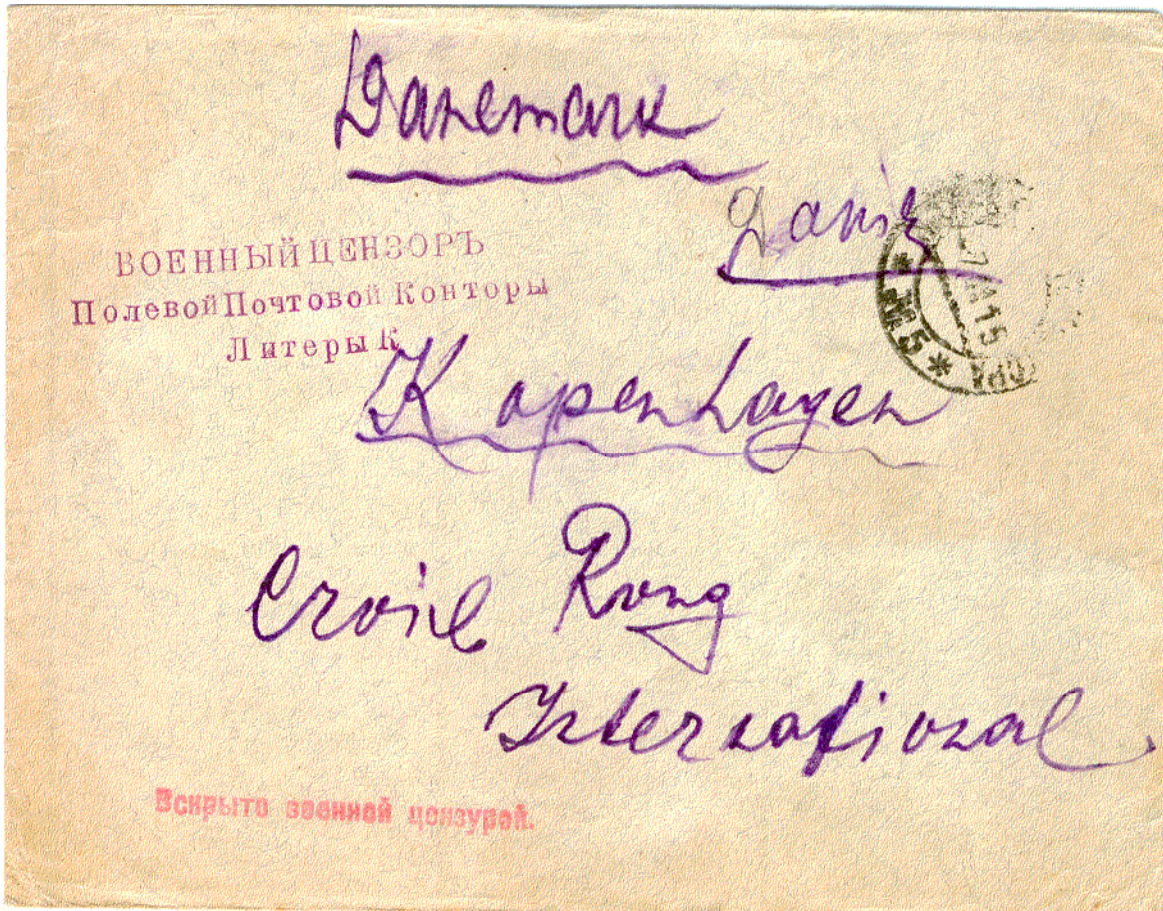 Danemark
Данія
ВОЕННЫЙ ЦЕНЗОРЪ
Полевой Почтовой Конторы
Литеры К
Kopenhagen
Croie Roug
International
Вскрыто военной цензурой.
* № 5 *